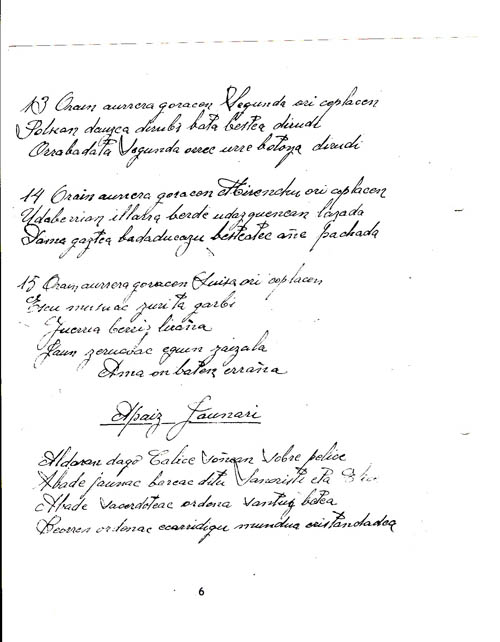 13 Orain aurrera goracon Segunda ori coplacen
Polsan dauzca dirubi bata bestea dirudi
Orrabadata Segunda orrec urre botoya dirudi
14 Orain aurrera goracon Mirenchu ori coplacen
Udaberrian illarra berde udazquenean larada
Dama gaztea badaducazu besteatec añe pachada
15 Orain aurrera goracon Luisa ori coplacen
Escu musuac zurita garbi
Guerria berriz liraña
Jaun zerucoac eguin zaizala
Ama on baten erraña
Apaiz Jaunari
Aldaran dago Calice Soñean Sobre pelice
Abade jaunac bareac ditu Sacristi eta
Abade Sacerdoteac ordena Santuz betea
Beorren ordenac ecarridigu mundua cristandadea
6